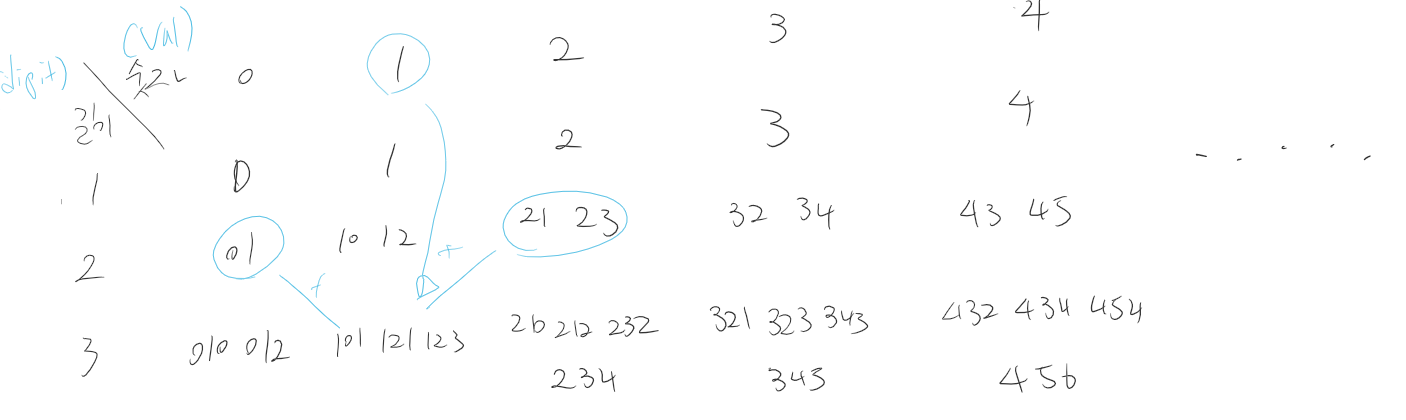 (Val)
digit) 숫자 0 1 2 3 4
길이
1 0 1 2 3 4
2 01 10 12 21 23 32 34 43 45
+ +
3 010 012 101 121 123 210 212 232 321 323 343 432 434 454
234 345 456